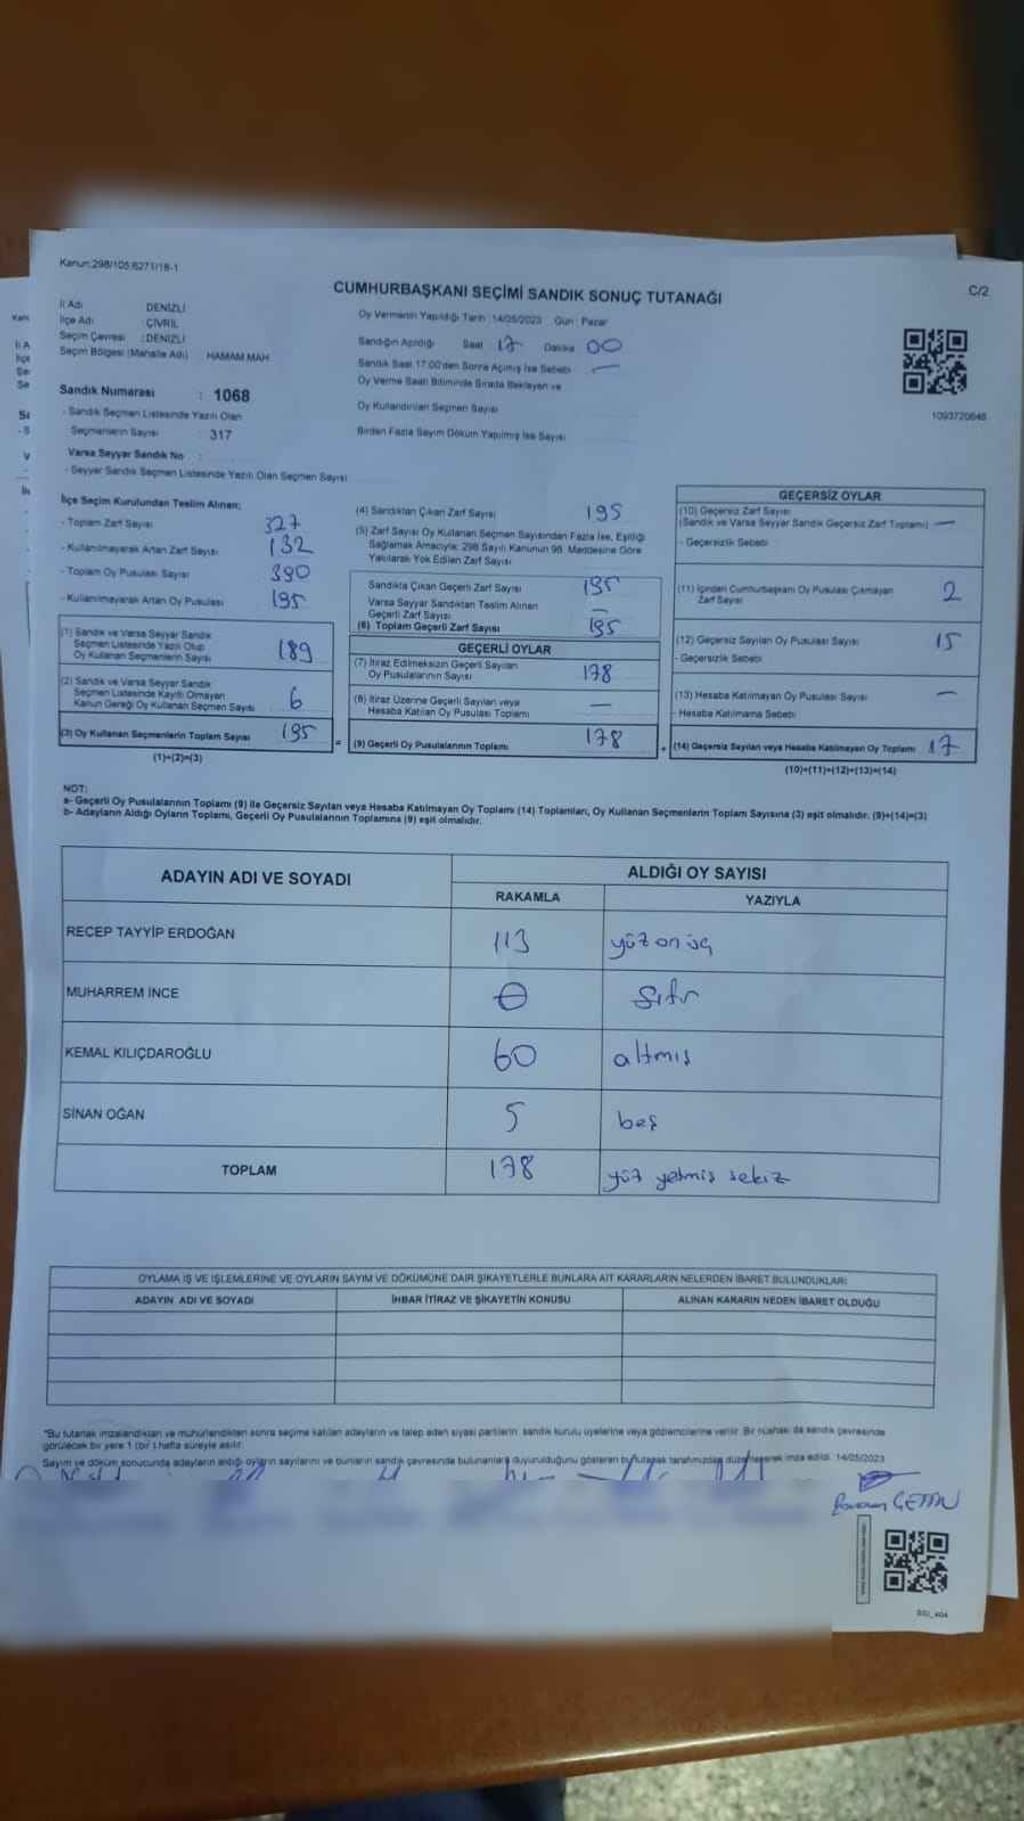 Kanun:298/105;6271/18-1
C/2
CUMHURBAŞKANI SEÇİMİ SANDIK SONUÇ TUTANAĞI
İl Adı DENİZLİ
İlçe Adı : ÇİVRİL
Seçim Çevresi : DENİZLİ
Seçim Bölgesi (Mahalle Adı) HAMAM MAH
Sandık Numarası : 1068
- Sandık Seçmen Listesinde Yazılı Olan
Seçmenlerin Sayısı 317
Varsa Seyyar Sandık No :
- Seyyar Sandık Seçmen Listesinde Yazılı Olan Seçmen Sayısı
Oy Vermenin Yapıldığı Tarih :14/05/2023 Gün : Pazar
Sandığın Açıldığı Saat 17 Dakika 00
Sandık Saat 17:00'den Sonra Açılmış İse Sebebi —
Oy Verme Saati Bitiminde Sırada Bekleyen ve
Oy Kullandırılan Seçmen Sayısı
Birden Fazla Sayım Döküm Yapılmış İse Sayısı
1093720648
İlçe Seçim Kurulundan Teslim Alınan;
- Toplam Zarf Sayısı 327
- Kullanılmayarak Artan Zarf Sayısı 132
- Toplam Oy Pusulası Sayısı 390
- Kullanılmayarak Artan Oy Pusulası 195
(1) Sandık ve Varsa Seyyar Sandık
Seçmen Listesinde Yazılı Olup
Oy Kullanan Seçmenlerin Sayısı 189
(2) Sandık ve Varsa Seyyar Sandık
Seçmen Listesinde Kayıtlı Olmayan
Kanun Gereği Oy Kullanan Seçmen Sayısı 6
(3) Oy Kullanan Seçmenlerin Toplam Sayısı 195
(1)+(2)=(3)
(4) Sandıktan Çıkan Zarf Sayısı 195
(5) Zarf Sayısı Oy Kullanan Seçmen Sayısından Fazla İse, Eşitliği
Sağlamak Amacıyla; 298 Sayılı Kanunun 98. Maddesine Göre
Yakılarak Yok Edilen Zarf Sayısı
Sandıkta Çıkan Geçerli Zarf Sayısı 195
Varsa Seyyar Sandıktan Teslim Alınan
Geçerli Zarf Sayısı —
(6) Toplam Geçerli Zarf Sayısı 195
GEÇERLİ OYLAR
(7) İtiraz Edilmeksizin Geçerli Sayılan
Oy Pusulalarının Sayısı 178
(8) İtiraz Üzerine Geçerli Sayılan veya
Hesaba Katılan Oy Pusulası Toplamı —
= (9) Geçerli Oy Pusulalarının Toplamı 178
GEÇERSİZ OYLAR
(10) Geçersiz Zarf Sayısı
(Sandık ve Varsa Seyyar Sandık Geçersiz Zarf Toplamı) —
- Geçersizlik Sebebi
(11) İçinden Cumhurbaşkanı Oy Pusulası Çıkmayan
Zarf Sayısı 2
(12) Geçersiz Sayılan Oy Pusulası Sayısı 15
- Geçersizlik Sebebi
(13) Hesaba Katılmayan Oy Pusulası Sayısı —
- Hesaba Katılmama Sebebi
+ (14) Geçersiz Sayılan veya Hesaba Katılmayan Oy Toplamı 17
(10)+(11)+(12)+(13)=(14)
NOT:
a- Geçerli Oy Pusulalarının Toplamı (9) ile Geçersiz Sayılan veya Hesaba Katılmayan Oy Toplamı (14) Toplamları, Oy Kullanan Seçmenlerin Toplam Sayısına (3) eşit olmalıdır. (9)+(14)=(3)
b- Adayların Aldığı Oyların Toplamı, Geçerli Oy Pusulalarının Toplamına (9) eşit olmalıdır.
ADAYIN ADI VE SOYADI ALDIĞI OY SAYISI
RAKAMLA YAZIYLA
RECEP TAYYİP ERDOĞAN 113 yüz on üç
MUHARREM İNCE 0 sıfır
KEMAL KILIÇDAROĞLU 60 altmış
SİNAN OĞAN 5 beş
TOPLAM 178 yüz yetmiş sekiz
OYLAMA İŞ VE İŞLEMLERİNE VE OYLARIN SAYIM VE DÖKÜMÜNE DAİR ŞİKAYETLERLE BUNLARA AİT KARARLARIN NELERDEN İBARET BULUNDUKLARI
ADAYIN ADI VE SOYADI İHBAR İTİRAZ VE ŞİKAYETİN KONUSU ALINAN KARARIN NEDEN İBARET OLDUĞU
"Bu tutanak imzalandıktan ve mühürlendikten sonra seçime katılan adayların ve talep eden siyasi partilerin sandık kurulu üyelerine veya gözlemcilerine verilir. Bir nüshası da sandık çevresinde
görülecek bir yere 1 (bir) hafta süreyle asılır.
Sayım ve döküm sonucunda adayların aldığı oyların sayılarını ve bunların sandık çevresinde bulunanlara duyurulduğunu gösteren bu tutanak tarafımızdan düzenlenerek imza edildi. 14/05/2023
ÇETİN